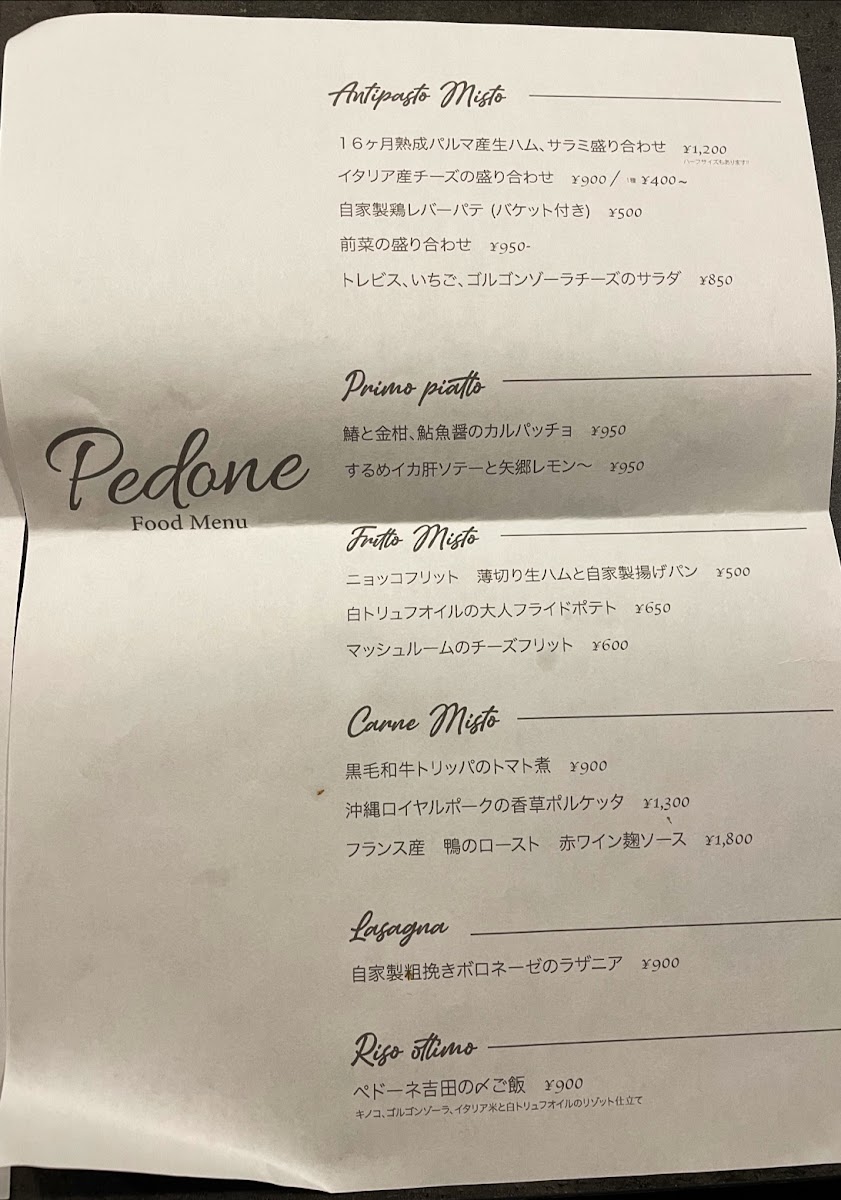 Antipasto Misto
16ヶ月熟成パルマ産生ハム、サラミ盛り合わせ ¥1,200
ハーフサイズもあります!!
イタリア産チーズの盛り合わせ ¥900 / 1種 ¥400~
自家製鶏レバーパテ (バケット付き) ¥500
前菜の盛り合わせ ¥950-
トレビス、いちご、ゴルゴンゾーラチーズのサラダ ¥850
Primo piatto
鰆と金柑、鮎魚醤のカルパッチョ ¥950
するめイカ肝ソテーと矢郷レモン〜 ¥950
Pedone
Food Menu
Fritto Misto
ニョッコフリット 薄切り生ハムと自家製揚げパン ¥500
白トリュフオイルの大人フライドポテト ¥650
マッシュルームのチーズフリット ¥600
Carne Misto
黒毛和牛トリッパのトマト煮 ¥900
沖縄ロイヤルポークの香草ポルケッタ ¥1,300
フランス産 鴨のロースト 赤ワイン麹ソース ¥1,800
Lasagna
自家製粗挽きボロネーゼのラザニア ¥900
Riso ottimo
ペドーネ吉田の〆ご飯 ¥900
キノコ、ゴルゴンゾーラ、イタリア米と白トリュフオイルのリゾット仕立て